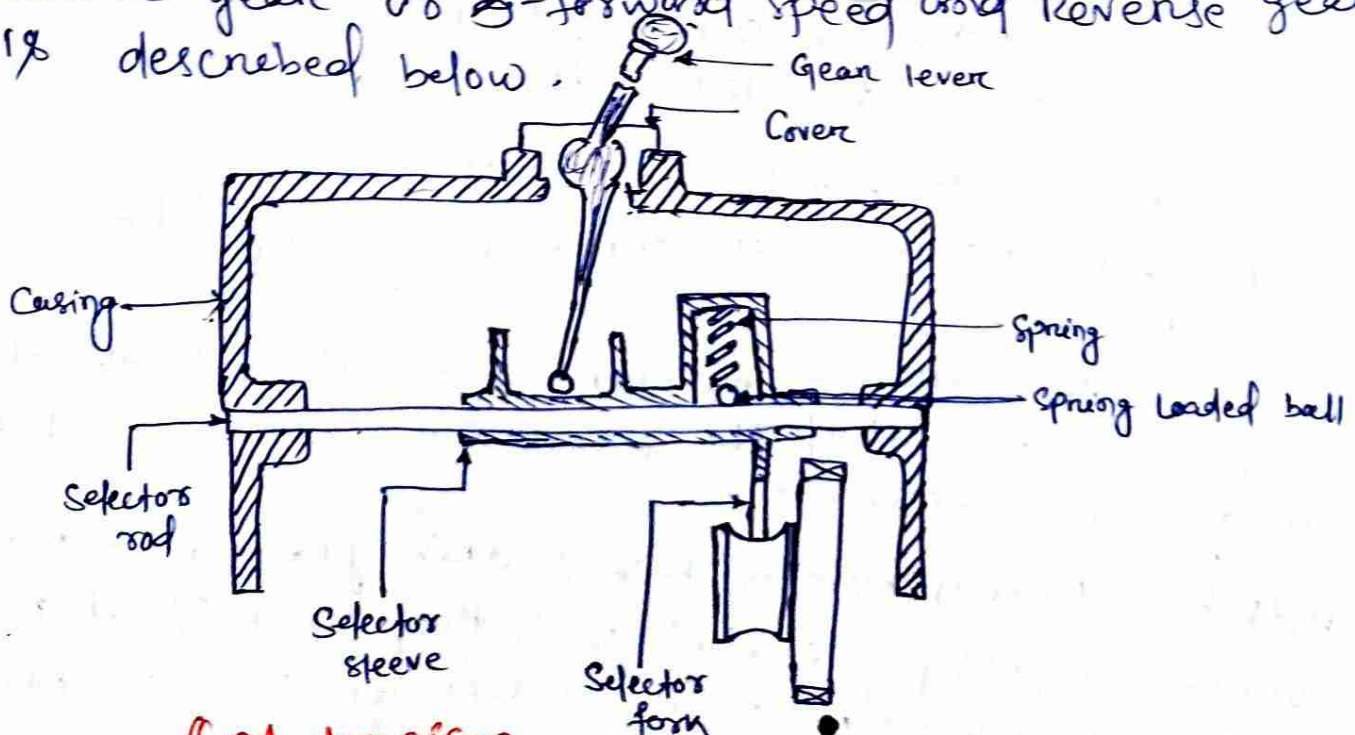 gear speed and Reverse
is descrebed below.
Gear lever
Cover
Casing
Spring
Spring Loaded ball
Selector
rod
Selector
sleeve
Selector
fork